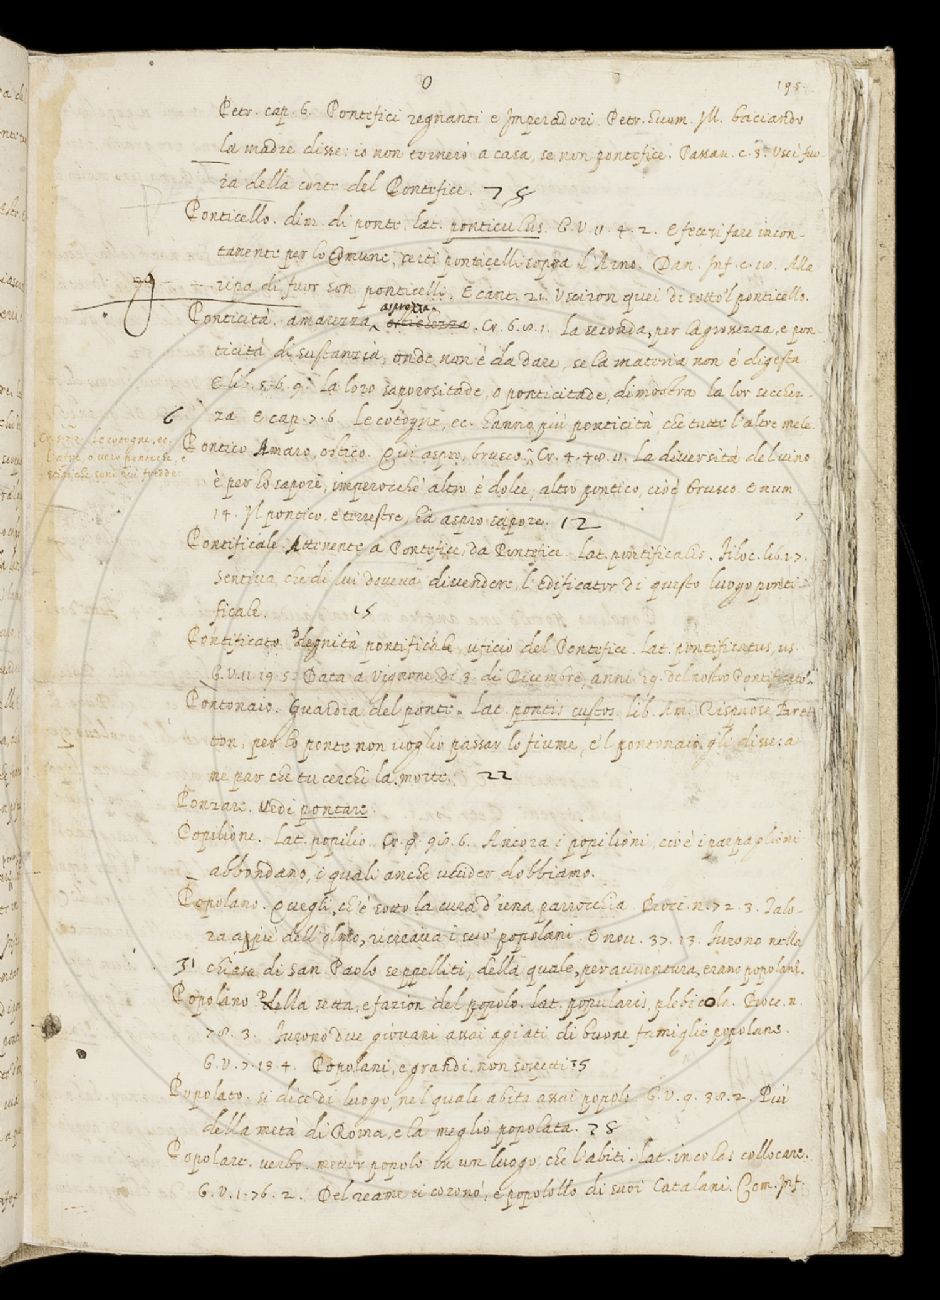 O
195.
Petr. cap. 6. Pontefici regnanti e Imperadori. Petr. huom. Ill. baciando
la madre disse: io non tornerò a casa, se non pontefice. Passau. c. 3. Uscì fuo-
ra della corte del Pontefice. 78
Ponticello. dim. di ponte. lat. ponticulus. G. V. 11. 4. 2. E feceui fare incon-
tanente per lo Comune, certi ponticelli sopra l'Arno. Dan. Inf. c. 18. Alla
ripa di fuor son ponticelli. E cant. 21. Usciron quei di sotto 'l ponticello.
Ponticità. amarezza, asprezza. Cr. 6. 8. 1. La seconda, per la grossezza, e pon-
ticità di sustanzia, onde non è da dare, se la materia non è digesta
E lib. 5. 6. 9. La loro saporositade, o ponticitade, dimostra la lor secchez-
za. E cap. 7. 6. Le cotogne, ec. hanno più ponticità, che tutte l'altre mele.
6
Pontico Amaro, ostico. Qui aspro, brusco. Cr. 4. 48. 11. La diuersità del uino
è per lo sapore, imperocchè altro è dolce, altro pontico, cioè brusco. E num
14. Il pontico, e terrestre, ha aspro sapore. 12
Pontificale Attenente a Pontefice, da Pontefice. Lat. pontificalis. Filoc. lib. 17.
Sentiua, che di lui doueua discendere, l'Edificator di questo luogo ponti-
ficale. 15
Pontificato. Degnità pontificale, uficio del Pontefice. Lat. pontificatus, us.
G. V. 11. 19. 5. Data a Vignone dì 3. di Dicembre, anni 19. del nostro Pontificato.
Pontonaio. Guardia del ponte. Lat. pontis custos. lib. Am. Rispuose Bret-
ton, per lo ponte non uoglio passar lo fiume, e 'l pontonaio gli disse: a
me par che tu cerchi la morte. 22
Ponzare. Vedi pontare.
Popilione. Lat. popilio. Cr. 9. 98. 6. Ancora i popilioni, cioè i parpaglioni
abbondano, i quali anche uccider dobbiamo.
Popolano. Quegli, ch'è sotto la cura d'una parrocchia. Bocc. n. 72. 3. Talo-
ra appiè dell'olmo, ricreaua i suo' popolani. E nou. 37. 13. Furono nella
31 chiesa di San Paolo seppelliti, della quale, per auuentura, erano popolani.
Popolano Della setta, e fazion del popolo. Lat. popularis, plebicola. Bocc. n.
78. 3. Furono due giouani assai agiati di buone famiglie popolane.
G. V. 7. 13. 4. Popolani, e grandi, non sospetti 35
Popolato. si dice di luogo, nel quale abita assai popolo. G. V. 9. 38. 2. Più
della metà di Roma, e la meglio popolata. 38
Popolare. uerbo. metter popolo in un luogo, che l'abiti. Lat. incolas collocare.
G. V. 1. 76. 2. Del reame si coronò, e popolollo di suoi Catalani. Com. Inf.